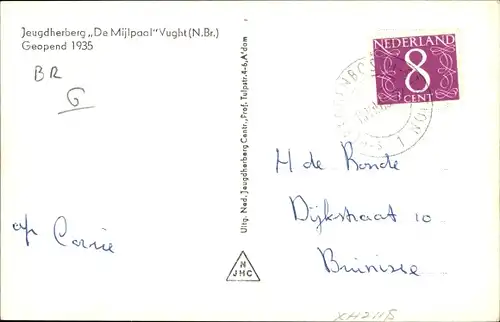 Jeugdherberg „De Mijlpaal" Vught (N.Br.)
Geopend 1935
BR
G
Uitg. Ned. Jeugdherberg Centr., Prof. Tulpstr. 4-6, A'dam
N
JHC
NEDERLAND
8
CENT
H de Ronde
Dijkstraat 10
Bruinisse
afz Corrie
XH2118